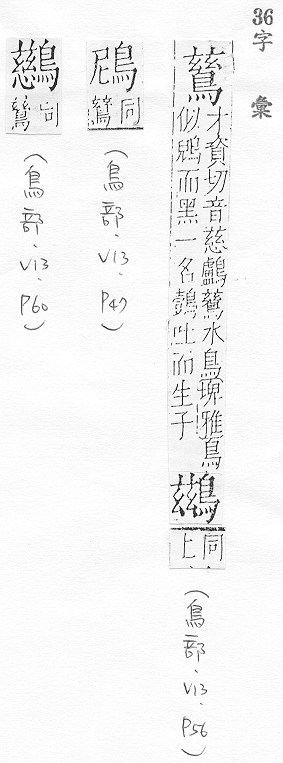 36字彙
鶿
才資切音慈鸕鶿水鳥埤雅鳥
似鶂而黑一名鷧吐而生子
鷀
同上
(鳥部.V13.P56)
鳾
同鶿
(鳥部.V13.P47)
同鶿
(鳥部.V13.P60)